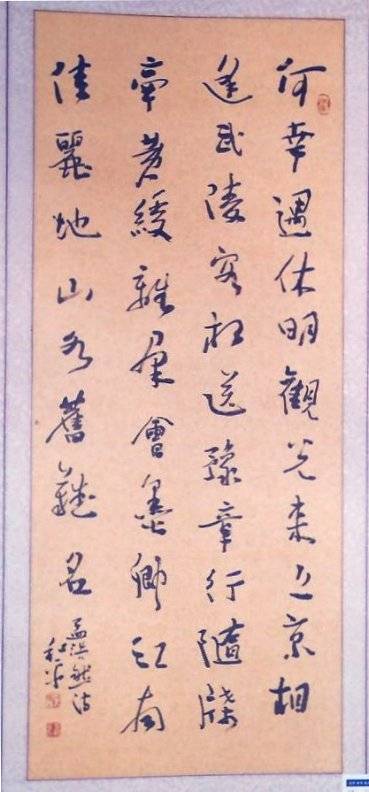 何幸遇休明觀光來上京相
逢武陵客獨送豫章行隨牒
牽黃綬離羣會墨卿江南
佳麗地山水舊難名
孟浩然诗
和平